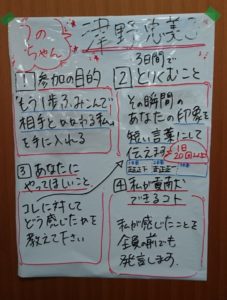 うのちゃん
津野恵美子
1 参加の目的
もう1歩ふみこんで
相手とかかわる私
を手に入れる
3日間で
2 とりくむこと
その瞬間の
あなたの印象を
短い言葉にして
伝えます
1日
20回以上
3 あなたに
やってほしいこと
コレに対して
どう感じたかを
教えて下さい
4 私が貢献
できるコト
私が感じたことを
全員の前でも
発言します。